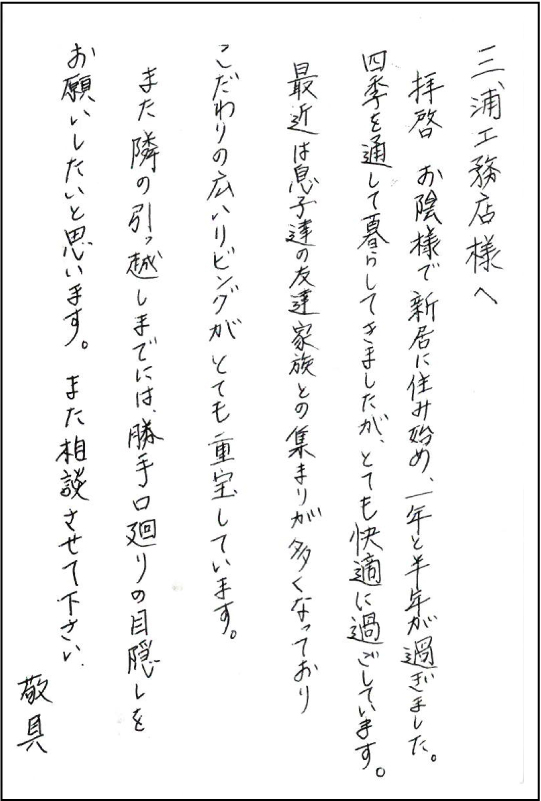 三浦工務店様へ
拝啓　お陰様で新居に住み始め、一年と半年が過ぎました。
四季を通して暮らしてきましたが、とても快適に過ごしています。
最近は息子達の友達家族との集まりが多くなっており
こだわりの広いリビングがとても重宝しています。
また隣の引っ越しまでには、勝手口廻りの目隠しを
お願いしたいと思います。また相談させて下さい。
敬具